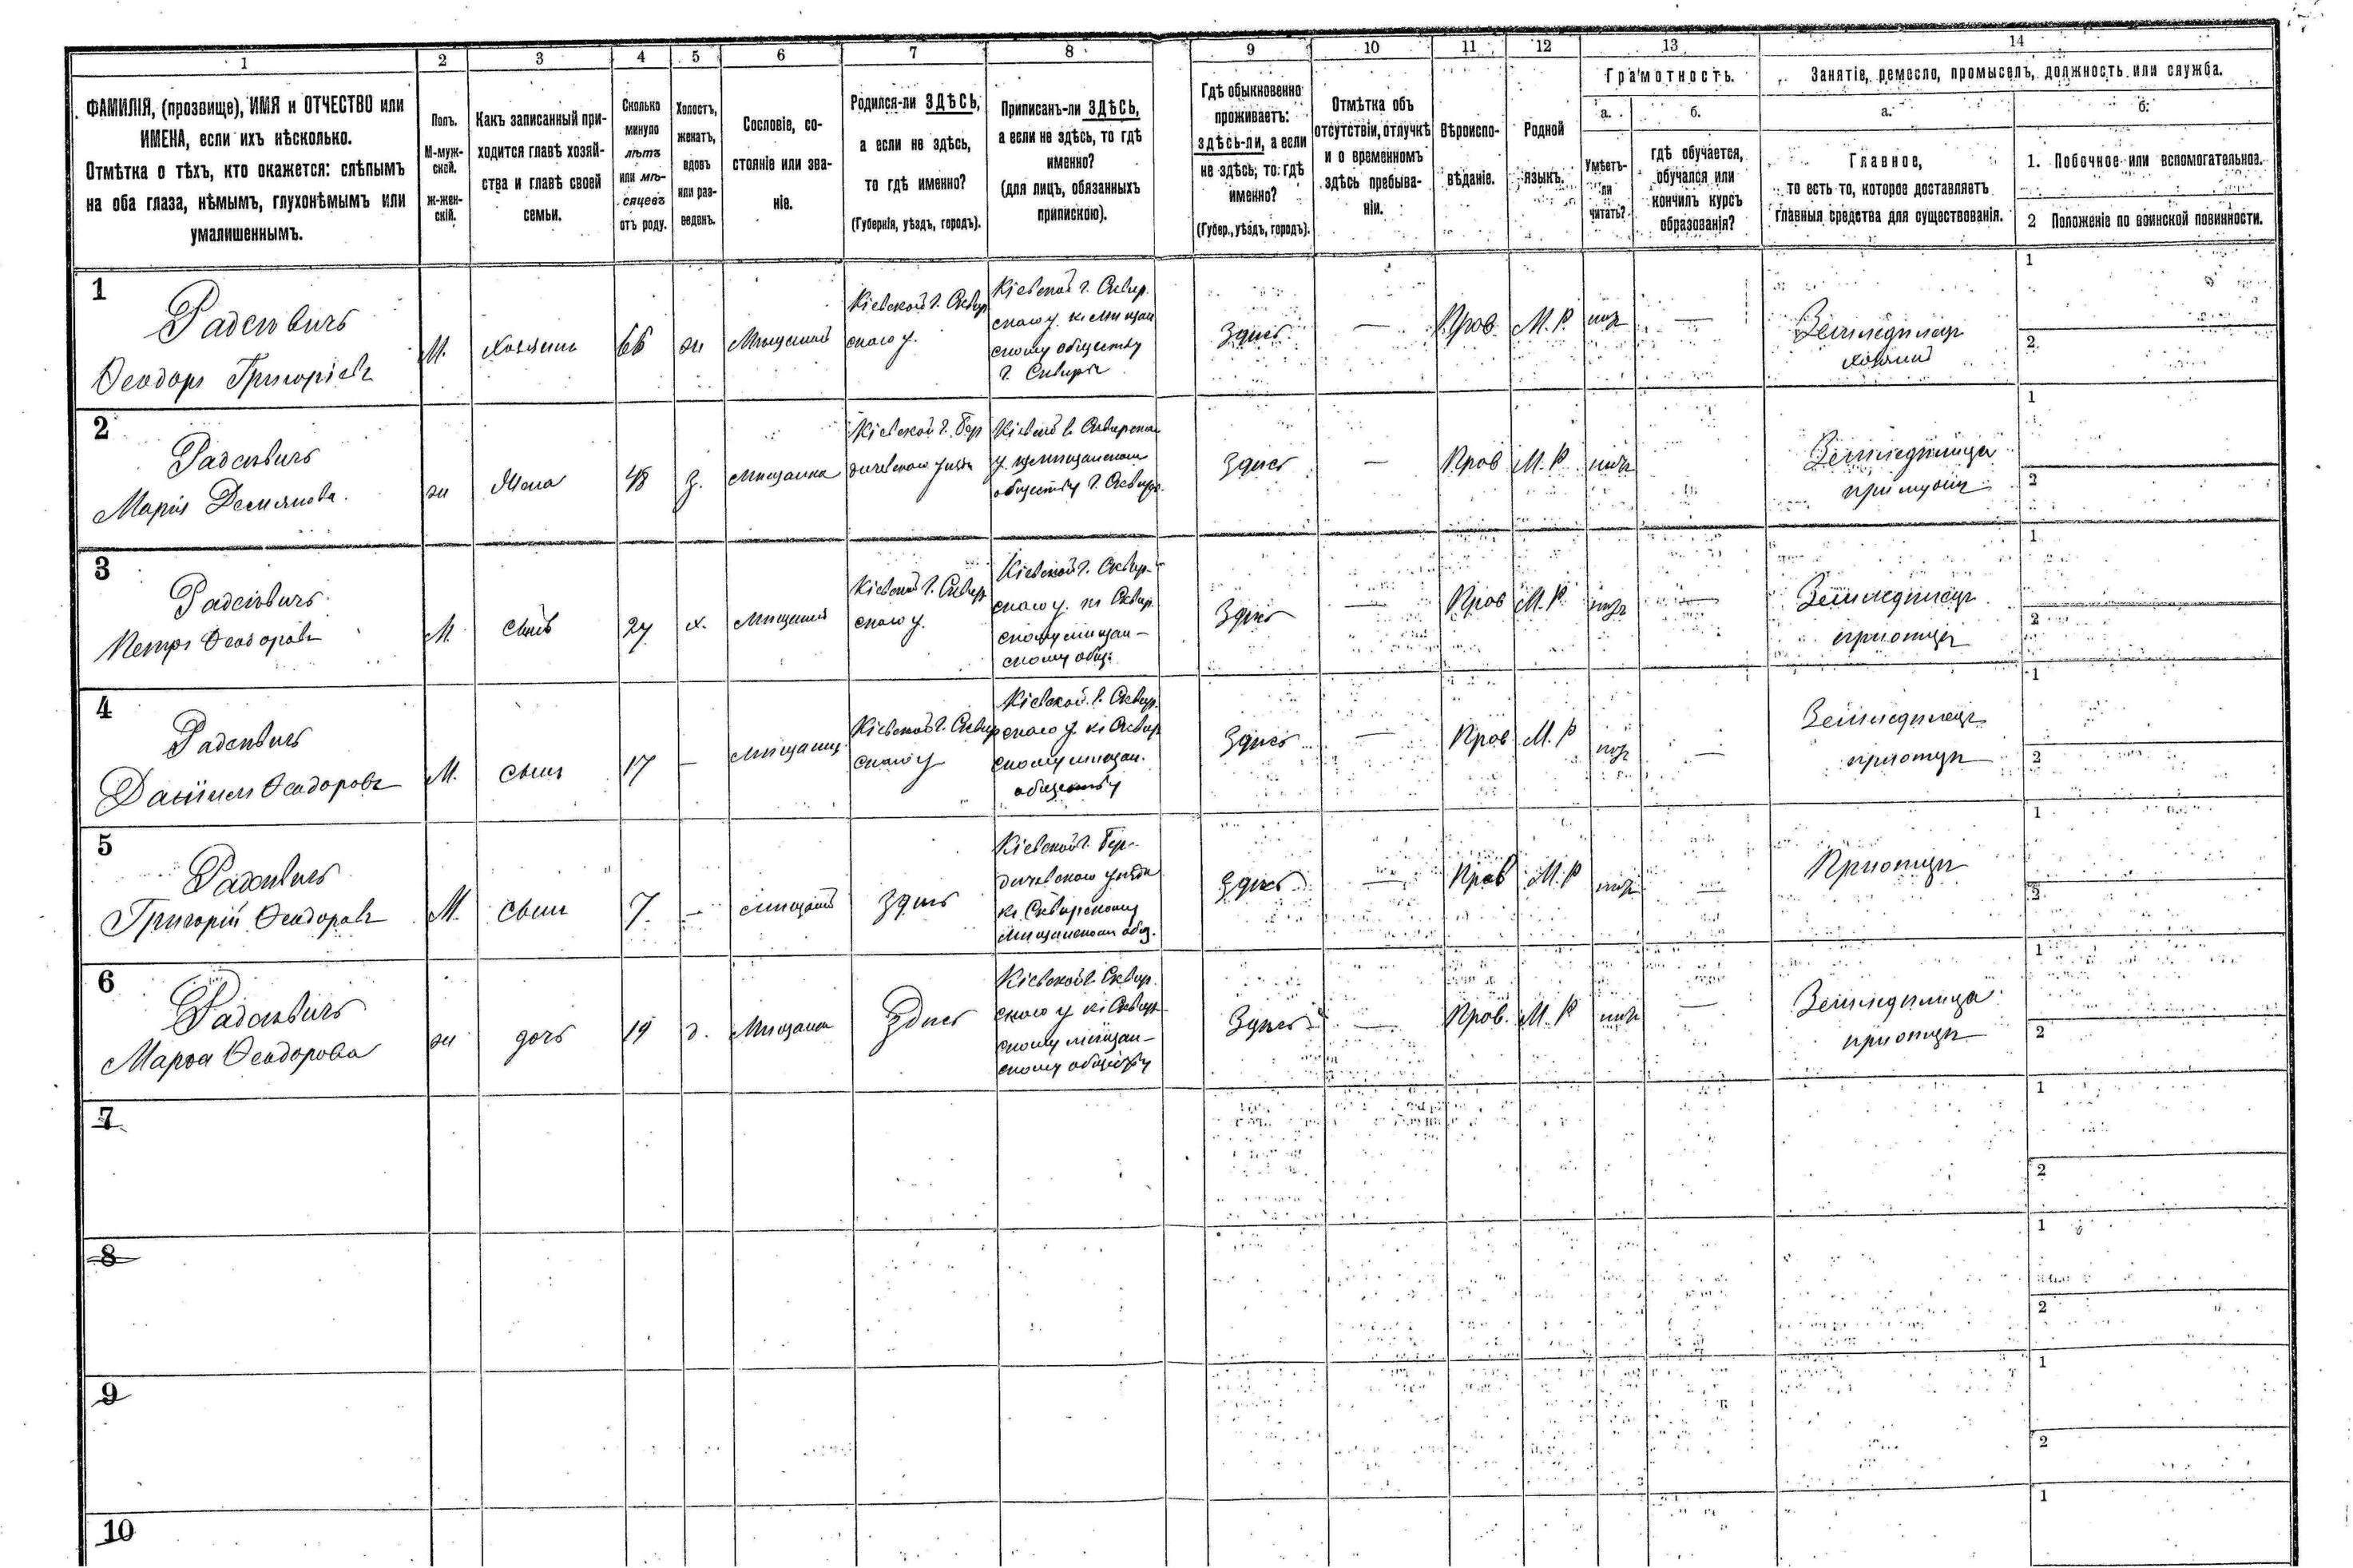 1 2 3 4 5 6 7 8 9 10 11 12 13 14
ФАМИЛІЯ, (прозвище), ИМЯ и ОТЧЕСТВО или
ИМЕНА, если ихъ нѣсколько.
Отмѣтка о тѣхъ, кто окажется: слѣпымъ
на оба глаза, нѣмымъ, глухонѣмымъ или
умалишеннымъ.
Полъ.
М-муж-
ской.
ж-жен-
скій.
Какъ записанный при-
ходится главѣ хозяй-
ства и главѣ своей
семьи.
Сколько
минуло
лѣтъ
или мѣ-
сяцевъ
отъ роду.
Холостъ,
женатъ,
вдовъ
или раз-
веденъ.
Сословіе, со-
стояніе или зва-
ніе.
Родился-ли ЗДѢСЬ,
а если не здѣсь,
то гдѣ именно?
(Губернія, уѣздъ, городъ).
Приписанъ-ли ЗДѢСЬ,
а если не здѣсь, то гдѣ
именно?
(для лицъ, обязанныхъ
припискою).
Гдѣ обыкновенно
проживаетъ:
здѣсь-ли, а если
не здѣсь, то гдѣ
именно?
(Губер., уѣздъ, городъ).
Отмѣтка объ
отсутствіи, отлучкѣ
и о временномъ
здѣсь пребыва-
ніи.
Вѣроиспо-
вѣданіе.
Родной
языкъ.
Грамотность.
а.
Умѣетъ-
ли
читать?
б.
гдѣ обучается,
обучался или
кончилъ курсъ
образованія?
Занятіе, ремесло, промыселъ, должность или служба.
а.
Главное,
то есть то, которое доставляетъ
главныя средства для существованія.
б.
1. Побочное или вспомогательное.
2 Положеніе по воинской повинности.
1
Ѳеодоръ Григоріевъ
М.
Хозяинъ
66
ж
Мѣщанинъ
Кіевской г. Сквир
скаго у.
Кіевской г. Сквир.
скаго у. къ мѣщан
скому обществу
г. Сквиры
Здѣсь
—
Прав.
М. Р.
нѣтъ
—
Земледѣлецъ
хозяинъ
1
2
2
Марія Демьянова
ж
Жена
48
з.
Мѣщанка
Кіевской г. Бер
дичевского уѣзда
Кіевской г. Сквирскаго
у. къ мѣщанскому
обществу г. Сквиры
Здѣсь
—
Прав
М. Р
нѣтъ
Земледѣлица
при мужѣ
1
2
3
Петръ Ѳеодоровъ
М.
Сынъ
27
х.
Мѣщанинъ
Кіевской г. Сквир
скаго у.
Кіевской г. Сквир-
скаго у. къ Сквир
скому мѣщан-
скому общ.
Здѣсь
—
Прав
М. Р
нѣтъ
—
Земледѣлецъ
при отцѣ
1
2
4
Даніилъ Ѳеодоровъ
М.
Сынъ
17
—
Мѣщанинъ
Кіевской г. Сквир
скаго у
Кіевской г. Сквир.
скаго у. къ Сквир
скому мѣщан.
обществу
Здѣсь
—
Прав
М. Р
нѣтъ
—
Земледѣлецъ
при отцѣ
1
2
5
Григорій Ѳеодоровъ
М.
Сынъ
7
—
мѣщанинъ
Здѣсь
Кіевской г. Бер-
дичевского уѣзда
къ Сквирскому
мѣщанскому общ.
Здѣсь
—
Прав
М. Р
нѣтъ
—
При отцѣ
1
2
6
Марѳа Ѳеодорова
ж
дочь
19
д.
Мѣщанка
Здѣсь
Кіевской г. Сквир.
скаго у къ Сквир
скому мѣщан-
скому обществу
Здѣсь
—
Прав.
М. Р
нѣтъ
—
Земледѣлица
при отцѣ
1
2
7
1
2
8
1
2
9
1
2
10
1